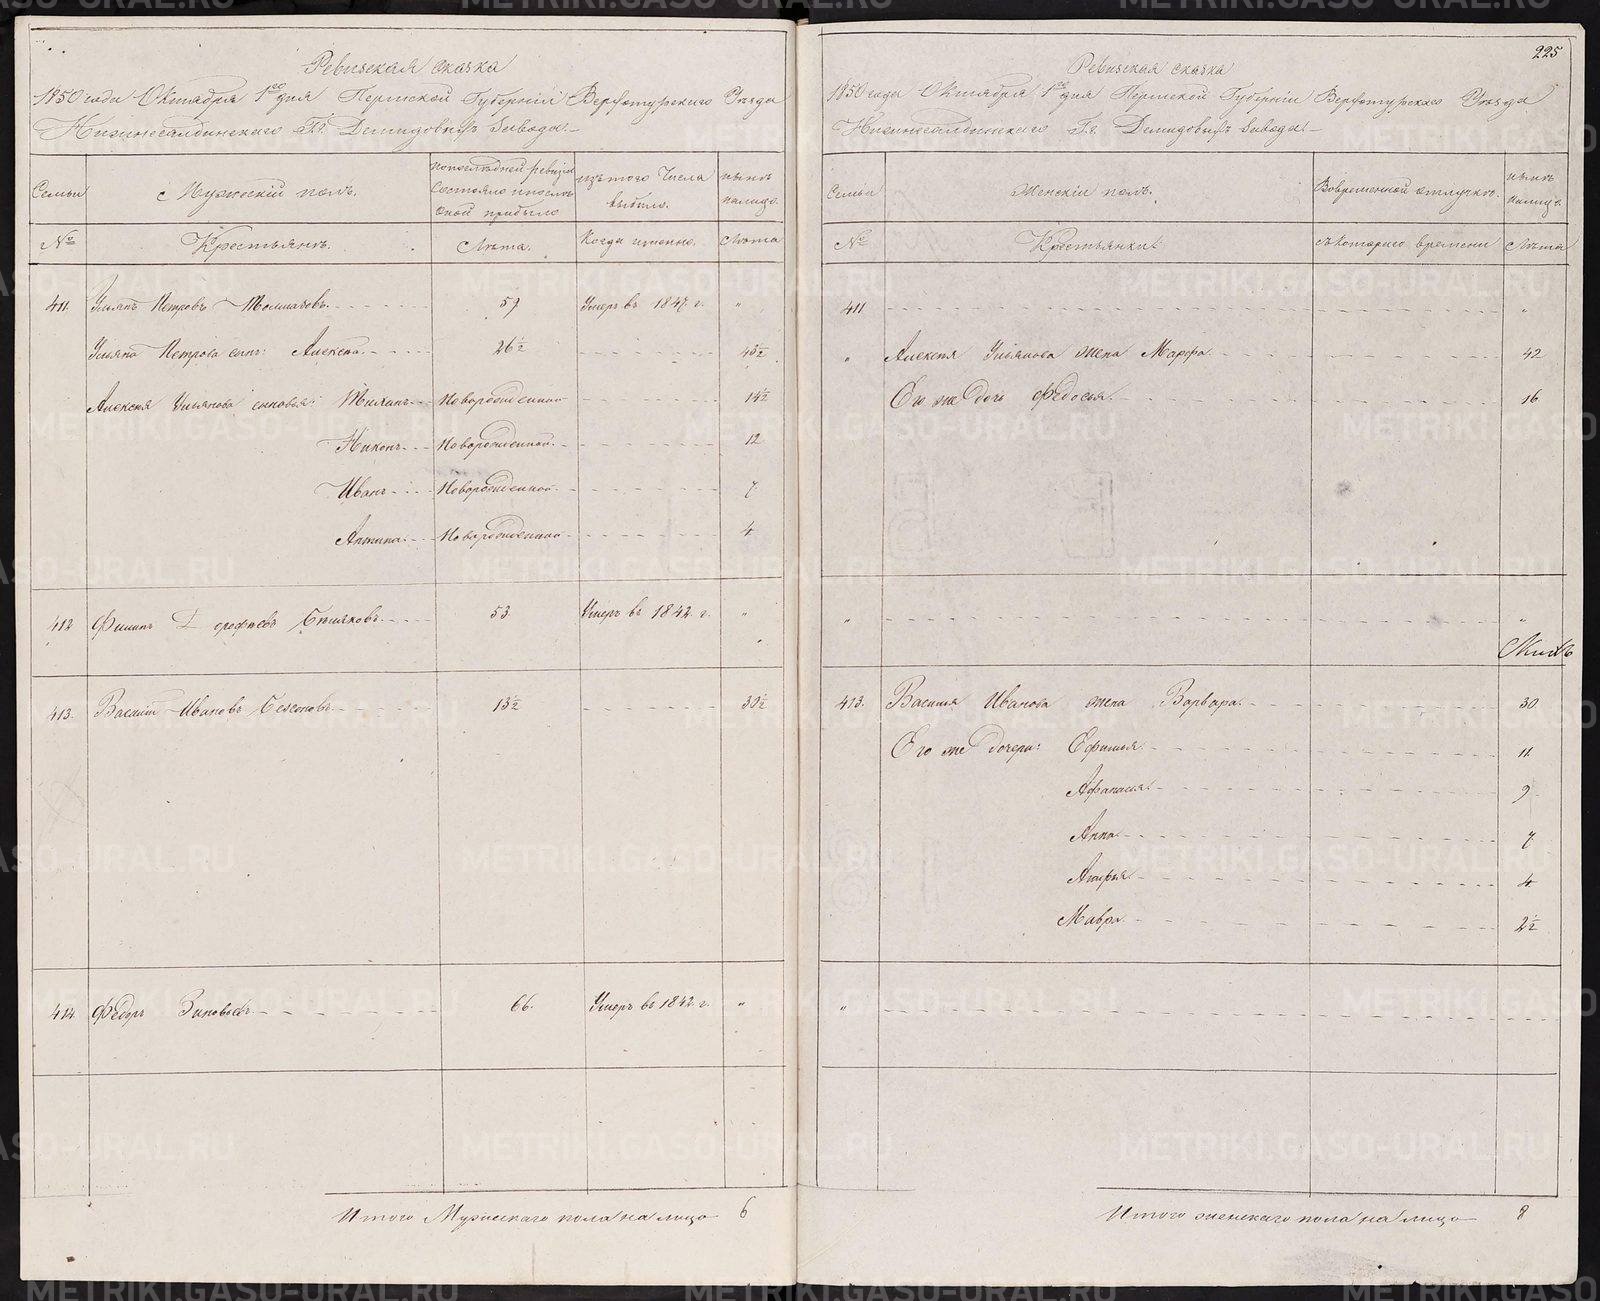 Ревизская сказка
1850 года Октября 1го дня Пермской Губернии Верхотурскаго Уезда
Нижнесалдинскаго Гг. Демидовыхъ завода.
Семьи
Мужескій полъ.
По последней ревизіи состояло и после оной прибыло
изъ того числа выбыло.
ныне налицо.
№
Крестьянъ.
Лѣта.
Когда именно.
Лѣта
411. Ульянъ Петровъ 59 Умеръ въ 1847. г. "
Ульяна Петрова сынъ: Алексей 26½ 43½
Алексея Ульянова сыновья: Новорожденной 14½
Никонъ Новорожденной 12
Иванъ Новорожденной 7.
Новорожденной 4
412 Филипъ Дорофеевъ 53. Умеръ въ 1842. г. "
413. Василій Ивановъ 13½ 30½
414. Федоръ Зиновьевъ 66. Умеръ въ 1842. г. "
Итого Мужескаго пола на лицо 6
225
Ревизская сказка
1850 года Октября 1го дня Пермской Губерніи Верхотурскаго Уезда
Нижнесалдинскаго Гг. Демидовыхъ завода.
Семьи
Женскій полъ.
Во временной отлучке.
ныне налицо.
№
Крестьянки
съ котораго времени
Лѣта
411 "
" Алексея Ульянова жена Марфа 42
Его же дочь Федосья 16
" "
413. Василья Иванова жена Варвара 30
Его же дочери: Ефимья 11.
Афанасия 9
Анна 7
4
Мавра 2½
"
Итого женскаго пола на лицо 8
METRIKI.GASO-URAL.RU